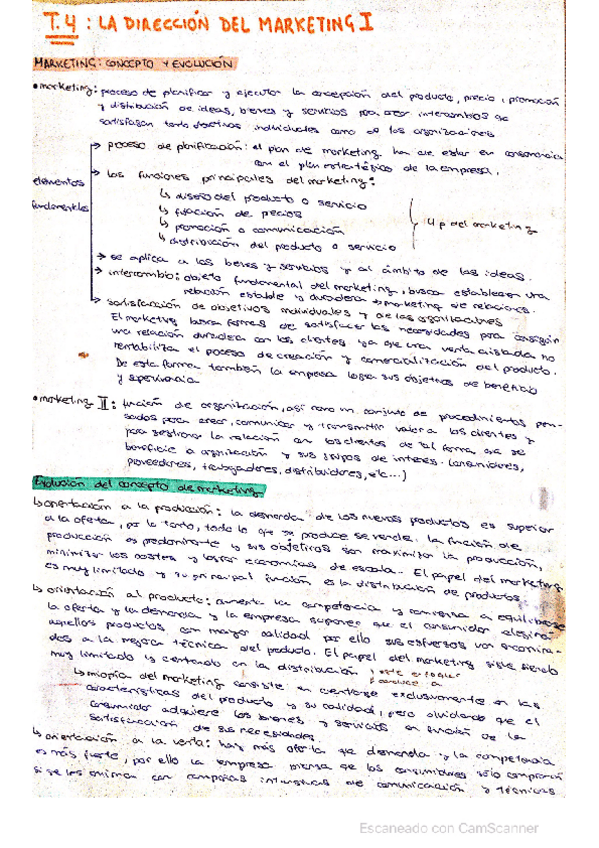 T.4 : LA DIRECCIÓN DEL MARKETING I
MARKETING: CONCEPTO Y EVOLUCIÓN
• marketing: proceso de planificar y ejecutar la concepción del producto, precio, promoción
y distribución de ideas, bienes y servicios para crear intercambios que
satisfagan tanto objetivos individuales como de las organizaciones
→ proceso de planificación: el plan de marketing ha de estar en consonancia
con el plan estratégico de la empresa.
elementos
fundamentales
→ las funciones principales del marketing:
↳ diseño del producto o servicio
↳ fijación de precios
↳ promoción o comunicación
↳ distribución del producto o servicio
4 p del marketing
→ se aplica a los bienes y servicios y al ámbito de las ideas.
→ intercambio: objeto fundamental del marketing, busca establecer una
relación estable y duradera → marketing de relaciones.
→ satisfacción de objetivos individuales y de las organizaciones
El marketing busca formas de satisfacer las necesidades para conseguir
una relación duradera con los clientes ya que una venta aislada no
rentabiliza el proceso de creación y comercialización del producto.
De esta forma también la empresa logra sus objetivos de beneficio
y supervivencia
• marketing II: función de organización, así como un conjunto de procedimientos pen-
sados para crear, comunicar y transmitir valor a los clientes y
para gestionar la relación con los clientes de tal forma que se
beneficie a organización y sus grupos de interés. (consumidores,
proveedores, trabajadores, distribuidores, etc...)
Evolución del concepto de marketing
↳ orientación a la producción: la demanda de los nuevos productos es superior
a la oferta, por lo tanto, todo lo que se produce se vende. la función de
producción es predominante y sus objetivos son maximizar la producción,
minimizar los costes y lograr economías de escala. El papel del marketing
es muy limitado y su principal función es la distribución de productos.
↳ orientación al producto: aumenta la competencia y comienza a equilibrarse
la oferta y la demanda y la empresa supone que el consumidor elegirá
aquellos productos con mayor calidad por ello sus esfuerzos van encamina-
dos a la mejora técnica del producto. El papel del marketing sigue siendo
muy limitado y centrado en la distribución y este enfoque
produce a
↳ miopía del marketing consiste en centrarse exclusivamente en las
características del producto y su calidad, pero olvidando que el
consumidor adquiere los bienes y servicios en función de la
satisfacción de sus necesidades.
↳ orientación a la venta: hay más oferta que demanda y la competencia
es más fuerte, por ello la empresa piensa que los consumidores sólo comprarán
si se les anima con campañas intensivas de comunicación y técnicas
Escaneado con CamScanner